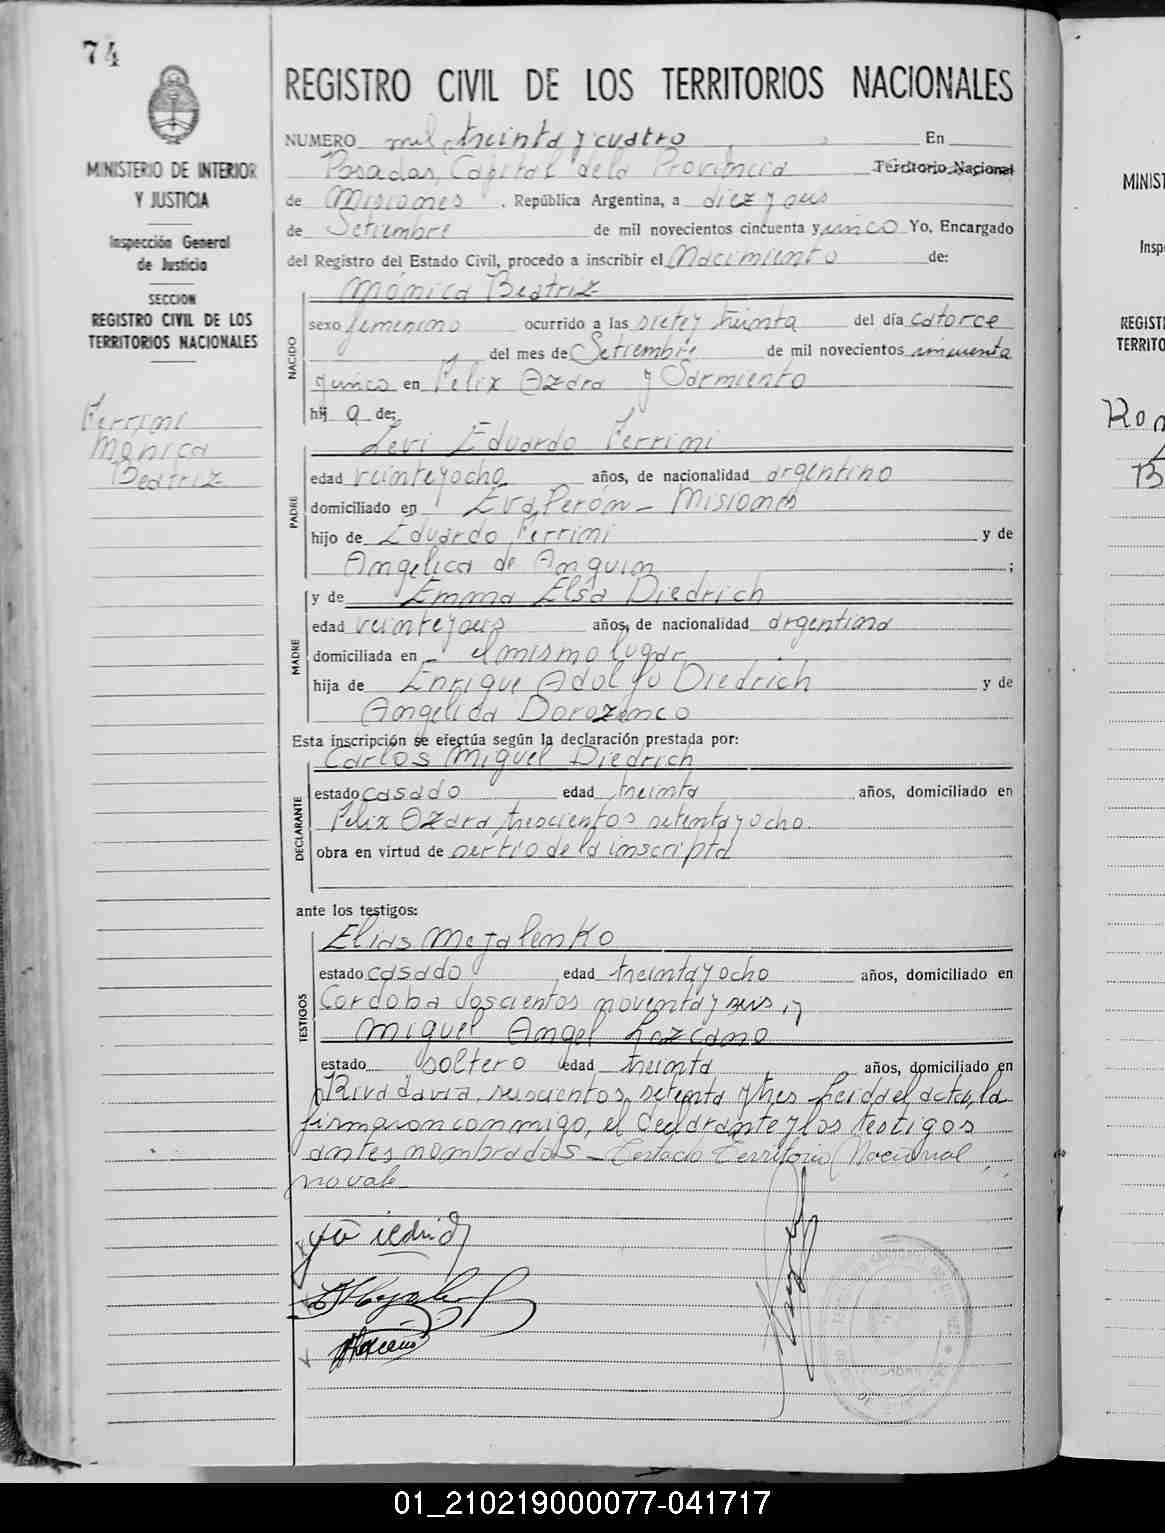 74
MINISTERIO DE INTERIOR
Y JUSTICIA
Inspección General
de Justicia
SECCION
REGISTRO CIVIL DE LOS
TERRITORIOS NACIONALES
Ferrimi
Mónica
Beatriz
REGISTRO CIVIL DE LOS TERRITORIOS NACIONALES
NUMERO mil treinta y cuatro En
Posadas, Capital de la Provincia Territorio Nacional
de Misiones, República Argentina, a diez y seis
de Setiembre de mil novecientos cincuenta y cinco Yo, Encargado
del Registro del Estado Civil, procedo a inscribir el Nacimiento de:
Mónica Beatriz
NACIDO
sexo femenino ocurrido a las siete y treinta del día catorce
del mes de Setiembre de mil novecientos cincuenta
y cinco en Felix Azara y Sarmiento
hij a de:
Levi Eduardo Ferrimi
PADRE
edad veinteyocho años, de nacionalidad argentino
domiciliado en Eva Perón - Misiones
hijo de Eduardo Ferrimi y de
Angélica de Anguin ;
MADRE
y de Emma Elsa Diedrich
edad veinteyseis años, de nacionalidad argentina
domiciliada en el mismo lugar
hija de Enrique Adolfo Diedrich y de
Angélica Dorozenco
Esta inscripción se efectúa según la declaración prestada por:
Carlos Miguel Diedrich
DECLARANTE
estado casado edad treinta años, domiciliado en
Felix Azara, trescientos setenta y ocho
obra en virtud de ser tío de la inscripta
ante los testigos:
Elias Megalenko
TESTIGOS
estado casado edad treinta y ocho años, domiciliado en
Cordoba doscientos noventa y seis, y
Miguel Angel Lezcano
estado soltero edad treinta años, domiciliado en
Rivadavia, seiscientos setenta y tres Leida el acta, la
firmaron conmigo, el declarante y los testigos
antes nombrados - Testado Territorio Nacional
no vale
MINIST
Insp
REGISTI
TERRITO
01_210219000077-041717